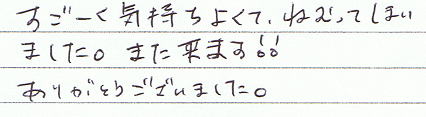 すごーく気持ちよくて、ねむってしまい
ました。また来ます!!
ありがとうございました。